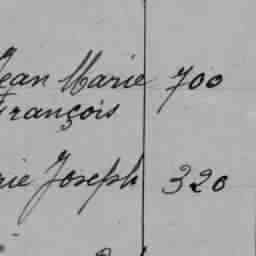 Jean Marie 700
François
rie Joseph 320